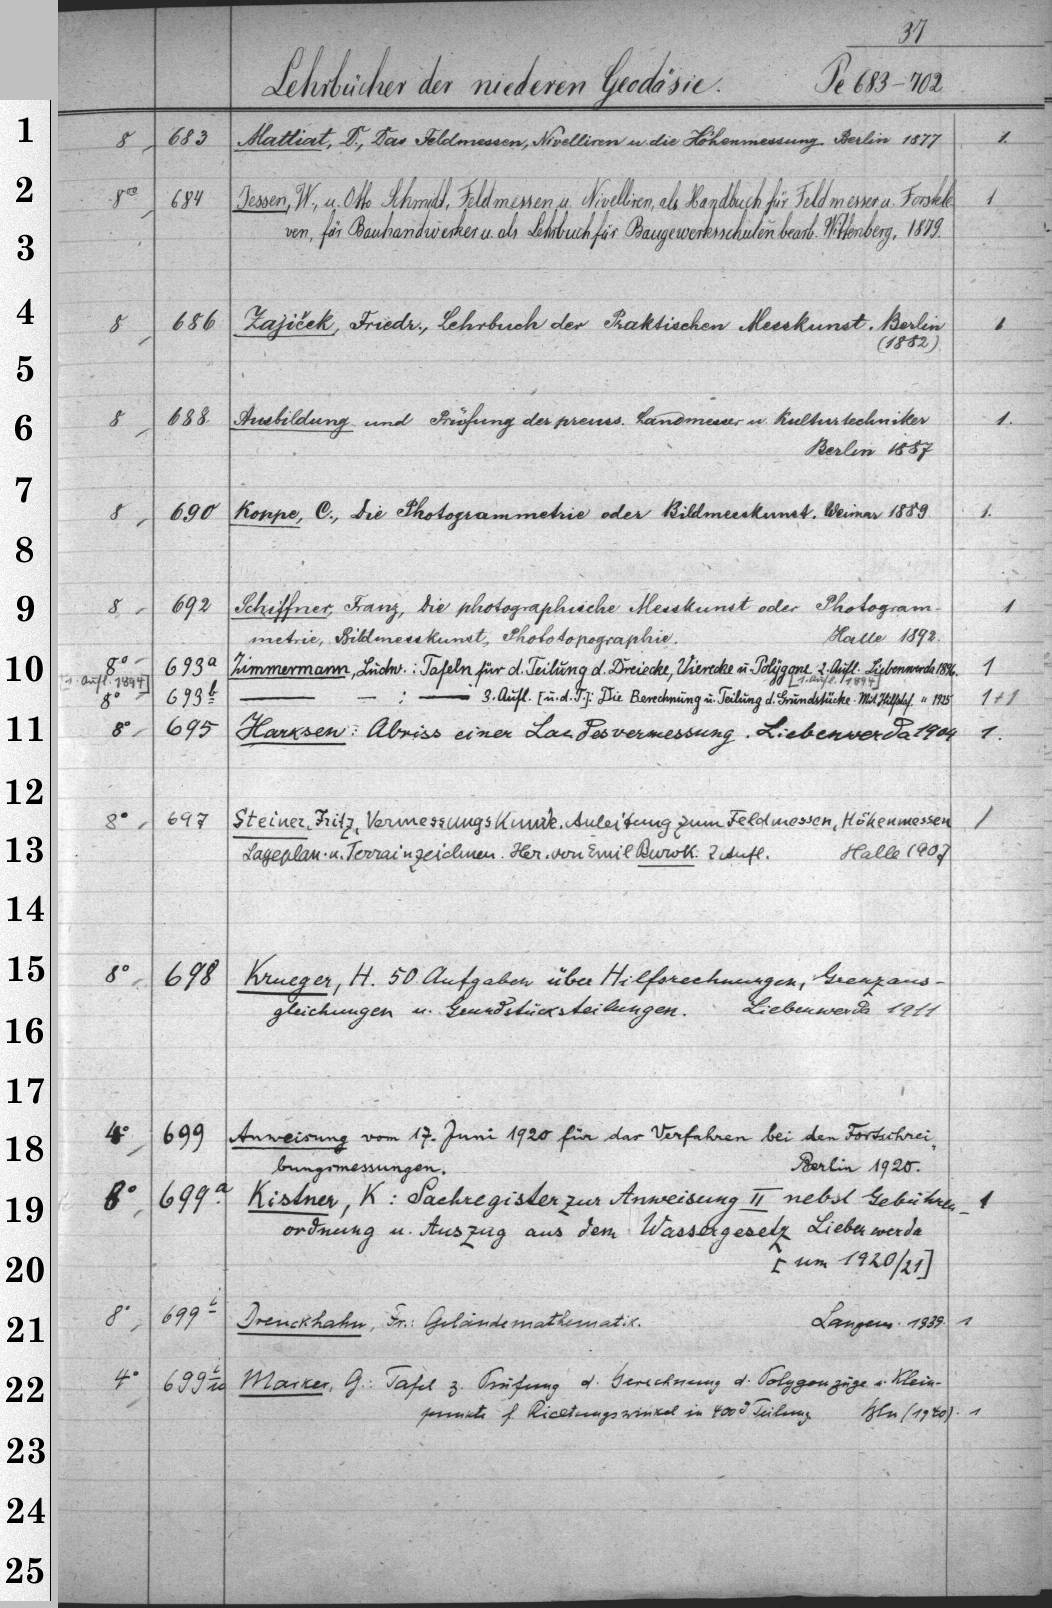 37
Lehrbücher der niederen Geodäsie. Pe 683-702
1 8 683 Mattiat, D., Das Feldmessen, Nivelliren u. die Höhenmessung. Berlin 1877 1.
2 8vo 684 Jessen, W., u. Otto Schmidt, Feldmessen u. Nivelliren, als Handbuch für Feldmesser u. Forstele-
3 ven, für Bauhandwerker u. als Lehrbuch für Baugewerksschulen bearb. Wittenberg, 1879. 1
4 8 686 Zajíček, Friedr., Lehrbuch der Praktischen Messkunst. Berlin 1
(1882)
5
6 8 688 Ausbildung und Prüfung der preuss. Landmesser u. Kulturtechniker 1.
Berlin 1887
7
8 690 Koppe, C., Die Photogrammetrie oder Bildmesskunst. Weimar 1889 1.
8
9 8 692 Schiffner, Franz, Die photographische Messkunst oder Photogram- 1
metrie, Bildmesskunst, Phototopographie. Halle 1892.
10 8° 693a Zimmermann, Ludw.: Tafeln für d. Teilung d. Dreiecke, Vierecke u. Polygone. 2. Aufl. Liebenwerda 1896. 1
[1. Aufl. 1894] [1. Aufl. 1894]
8° 693b — — : — 3. Aufl. [u. d. T.]: Die Berechnung u. Teilung d. Grundstücke. Mit Hilfstaf. " 1925 1+1
11 8° 695 Harksen: Abriss einer Landesvermessung. Liebenwerda 1904 1.
12
8° 697 Steiner, Fritz, Vermessungskunde. Anleitung zum Feldmessen, Höhenmessen 1
13 Lageplan- u. Terrainzeichnen. Her. von Emil Burok. 2 Aufl. Halle 1907
14
15 8° 698 Krueger, H. 50 Aufgaben über Hilfsrechnungen, Grenzaus-
gleichungen u. Grundstücksteilungen. Liebenwerda 1911
16
17
18 4° 699 Anweisung vom 17. Juni 1920 für das Verfahren bei den Fortschrei-
bungsmessungen. Berlin 1920.
19 8° 699a Kistner, K: Sachregister zur Anweisung II nebst Gebühren- 1
ordnung u. Auszug aus dem Wassergesetz Liebenwerda
20 [um 1920/21]
21 8° 699b Drenckhahn, Fr.: Geländemathematik. Langens. 1939. 1
22 4° 699 Marker, G.: Tafel z. Prüfung d. Berechnung d. Polygonzüge u. Klein-
punkte f. Richtungswinkel in 400g Teilung Bln (1940). 1
23
24
25